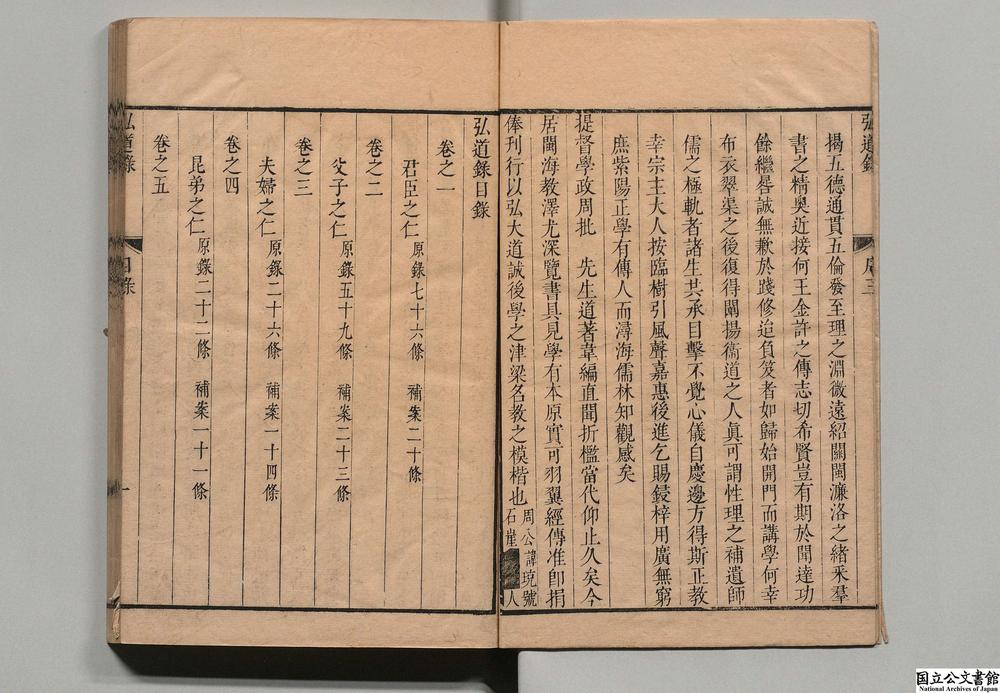 弘道錄
揭五德通貫五倫發至理之淵微遠紹關閩濂洛之緒釆羣
書之精奧近接何王金許之傳志切希賢豈有期於聞達功
餘繼晷誠無歉於踐修迨負笈者如歸始開門而講學何幸
布衣翠渠之後復得闡揚衞道之人眞可謂性理之補遺師
儒之極軌者諸生共承目擊不覺心儀自慶邊方得斯正教
幸宗主大人按臨樹引風聲嘉惠後進乞賜鋟梓用廣無窮
庶紫陽正學有傳人而潯海儒林知觀感矣
提督學政周批 先生道著韋編直聞折檻當代仰止久矣今
居閩海教澤尤深覽書具見學有本原實可羽翼經傳准卽捐
俸刊行以弘大道誠後學之津梁名教之模楷也
周公諱 號
石崖 人
弘道錄目錄
卷之一
君臣之仁 原錄七十六條 補案二十條
卷之二
父子之仁 原錄五十九條 補案二十三條
卷之三
夫婦之仁 原錄二十六條 補案一十四條
卷之四
昆弟之仁 原錄二十二條 補案一十一條
卷之五
弘道錄 目錄 一
国立公文書館
National Archives of Japan